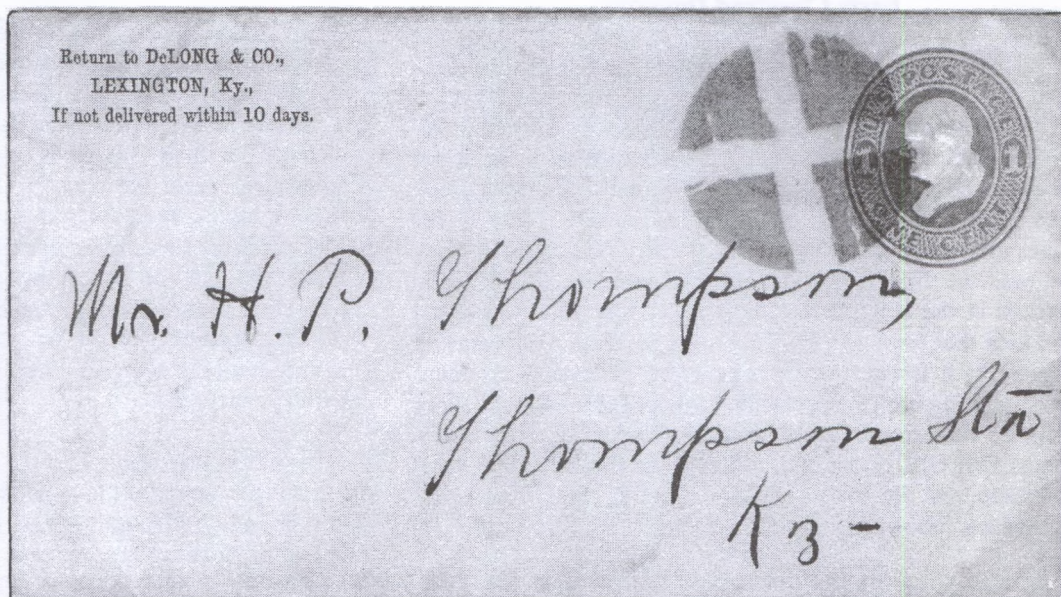 Return to DeLONG & CO.,
LEXINGTON, Ky.,
If not delivered within 10 days.
U.S. POSTAGE
1 1
ONE CENT
Mr. H. P. Thompson,
Thompson Stn
Ky -